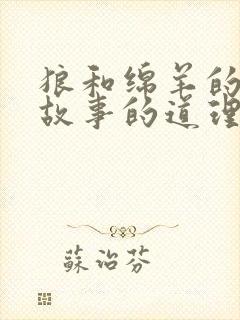 狼和绵羊的
故事的道理
蘇治芬